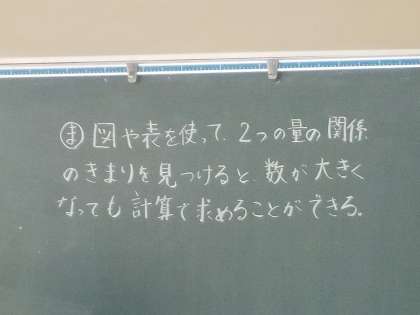 ま 図や表を使って、2つの量の関係
のきまりを見つけると、数が大きく
なっても計算で求めることができる。